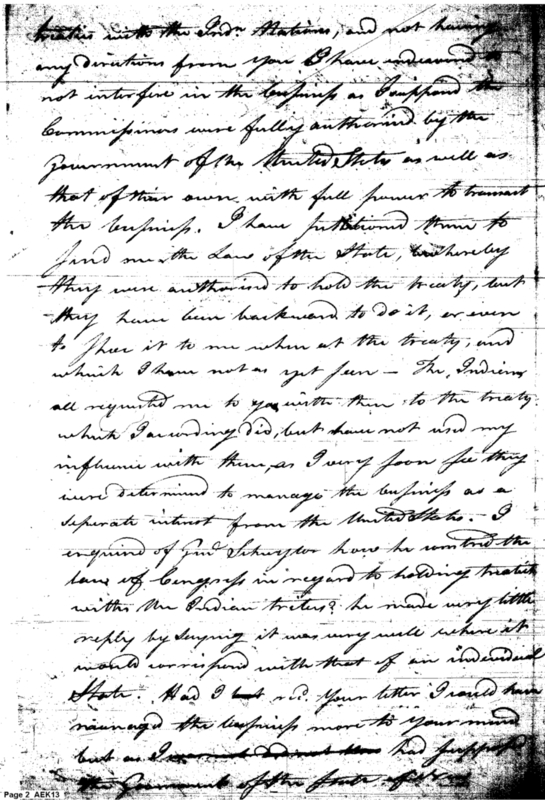 treaties with the Indn. Nations, and not having
any directions from you I have endeavord to
not interfere in the business as I suppond the
Commissinors were fully authorised by the
Government of the United States as well as
that of their own with full power to transact
the business. I have petitioned them to
send me the Law of the State, whereby
they were authorised to hold the treaty, but
they have been backward to do it, or even
to shoe it to me when at the treaty, and
which I have not as yet seen — The Indians
all requested me to go with them to the treaty
which I according did, but have not used my
influence with them, as I very soon see they
were determind to manage the business as a
seperate interest from the United States. — I
enquired of Genl. Schuylor how he construd the
law of Congress in regard to holding treaties
withe the Indian tribes? he made very little
reply by saying it was very well where it
would correspond with that of an individual
State. Had I recd. your letter I would have
managed the business more to your mind
but as I had supposed
the Government of the State of
Page 2 AEK13